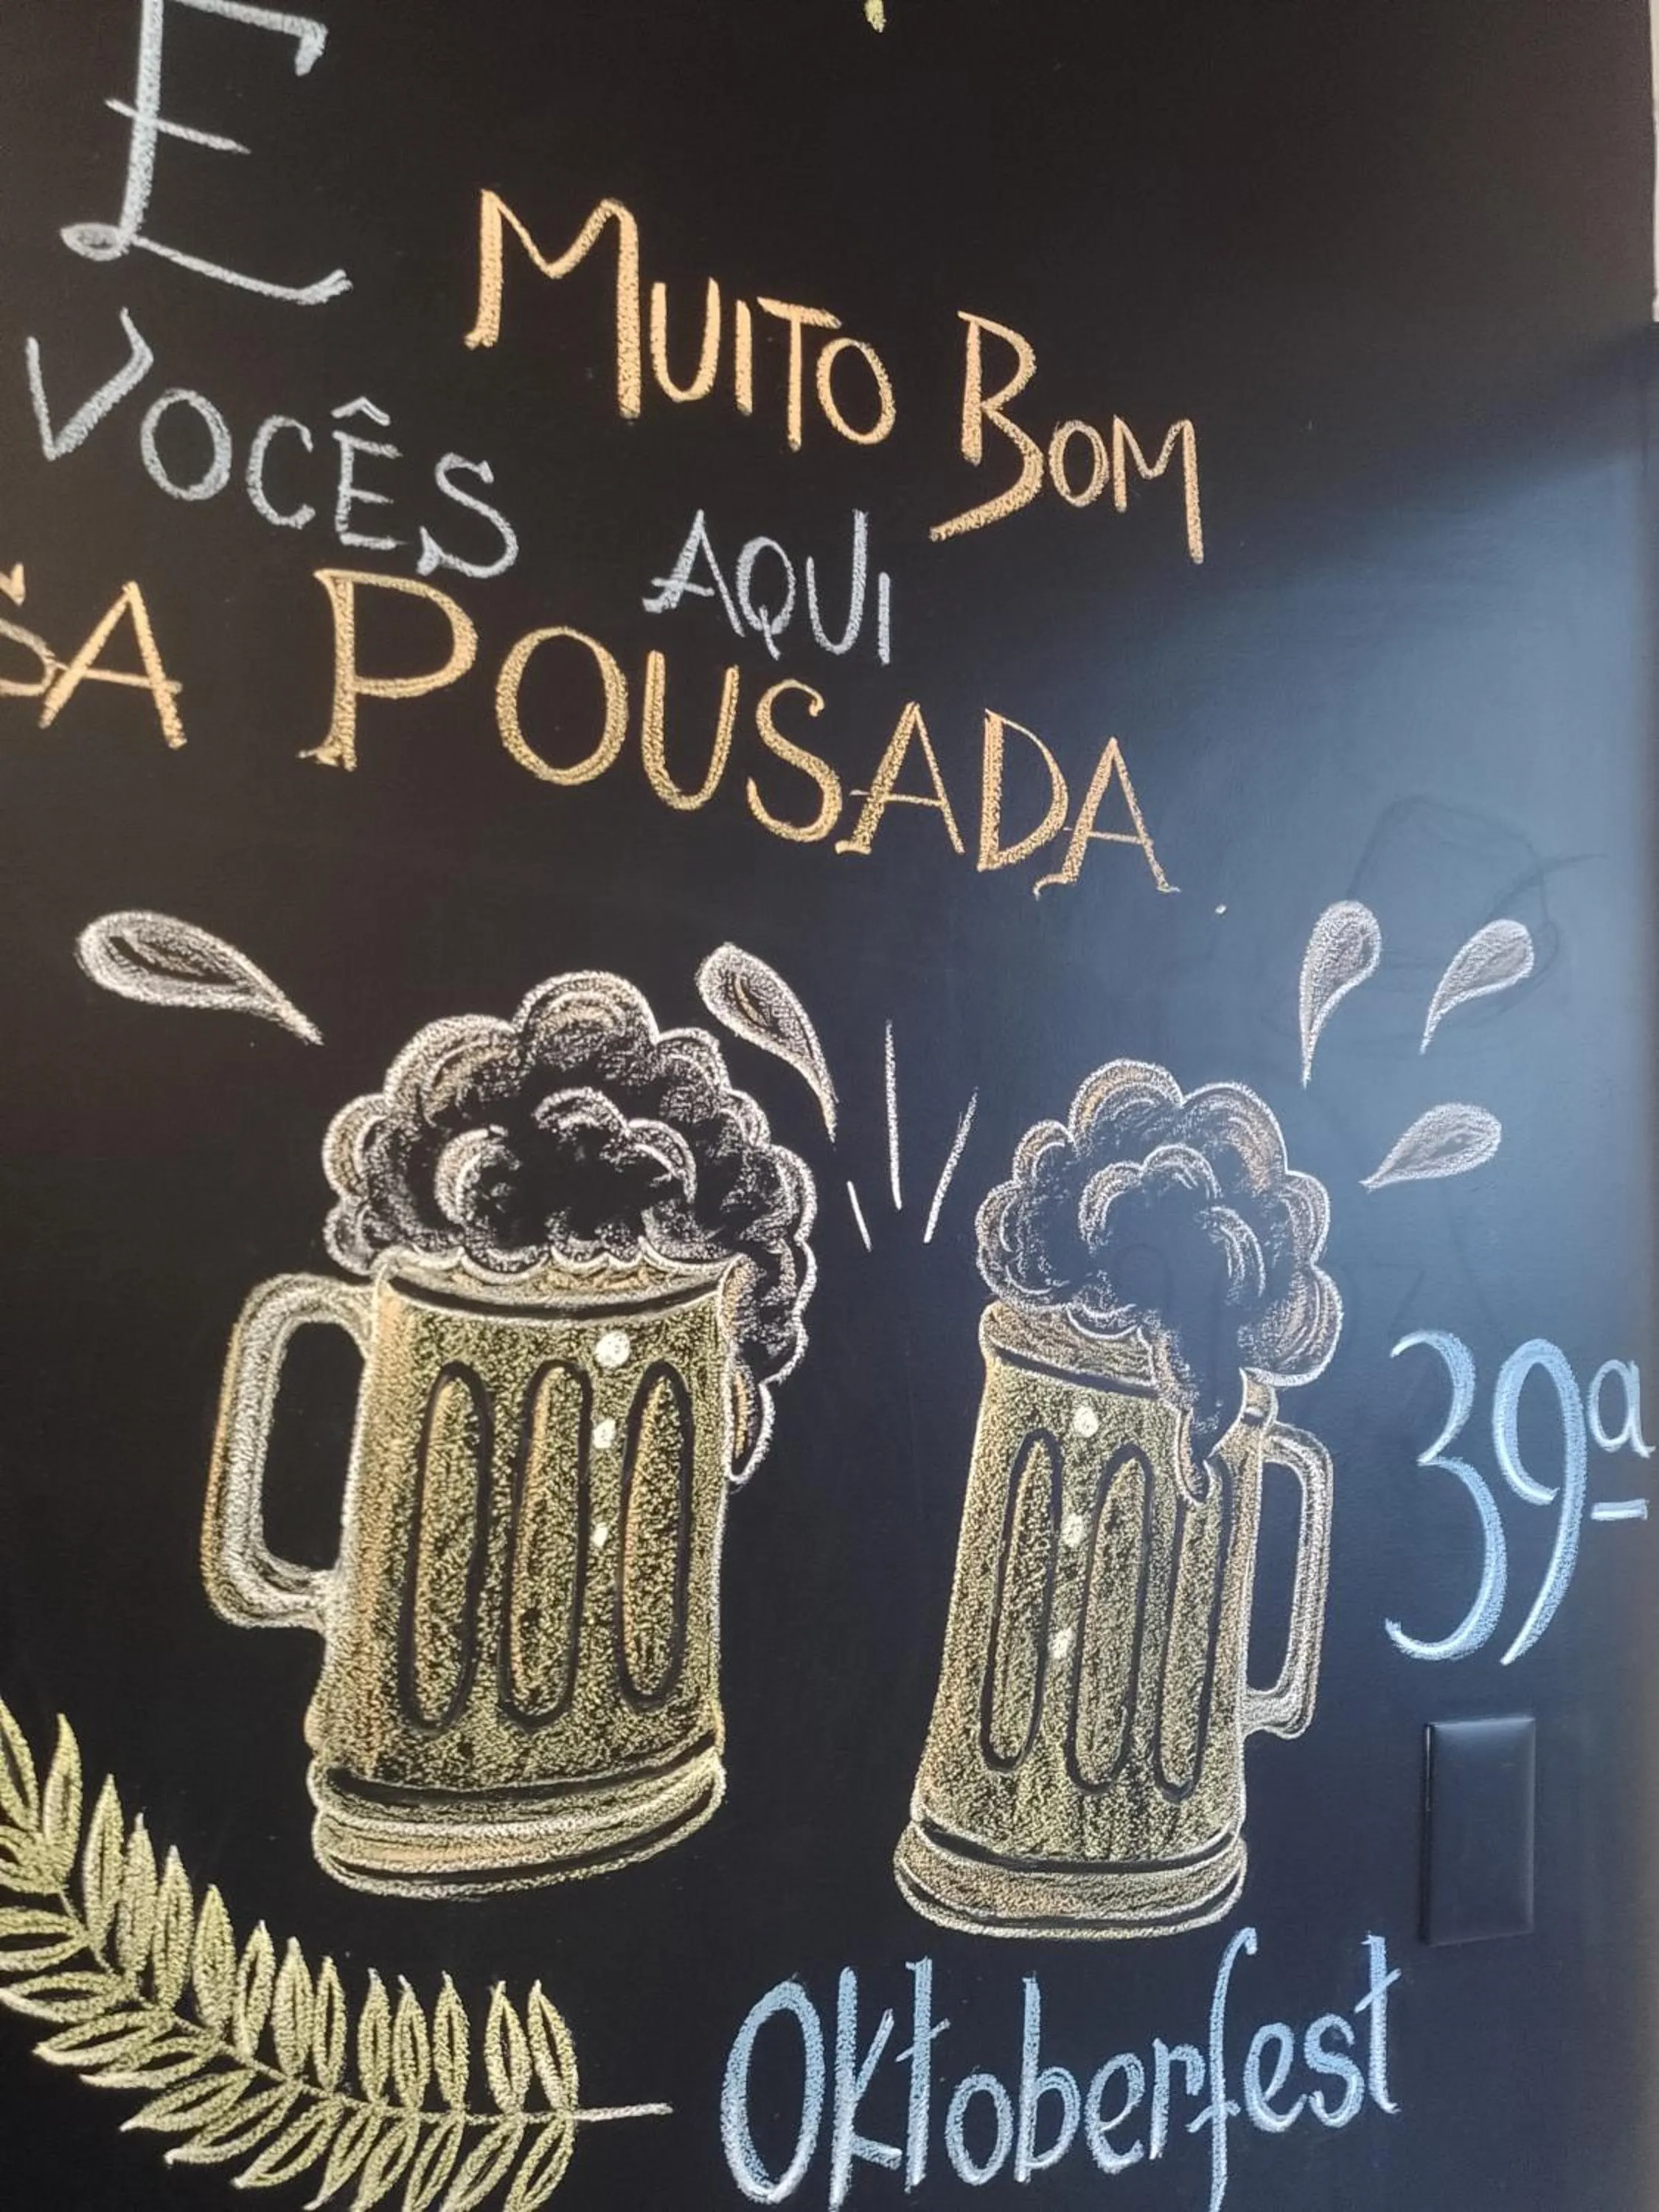 E MUITO BOM
VOCÊS AQUI
SA POUSADA
39ª
Oktoberfest